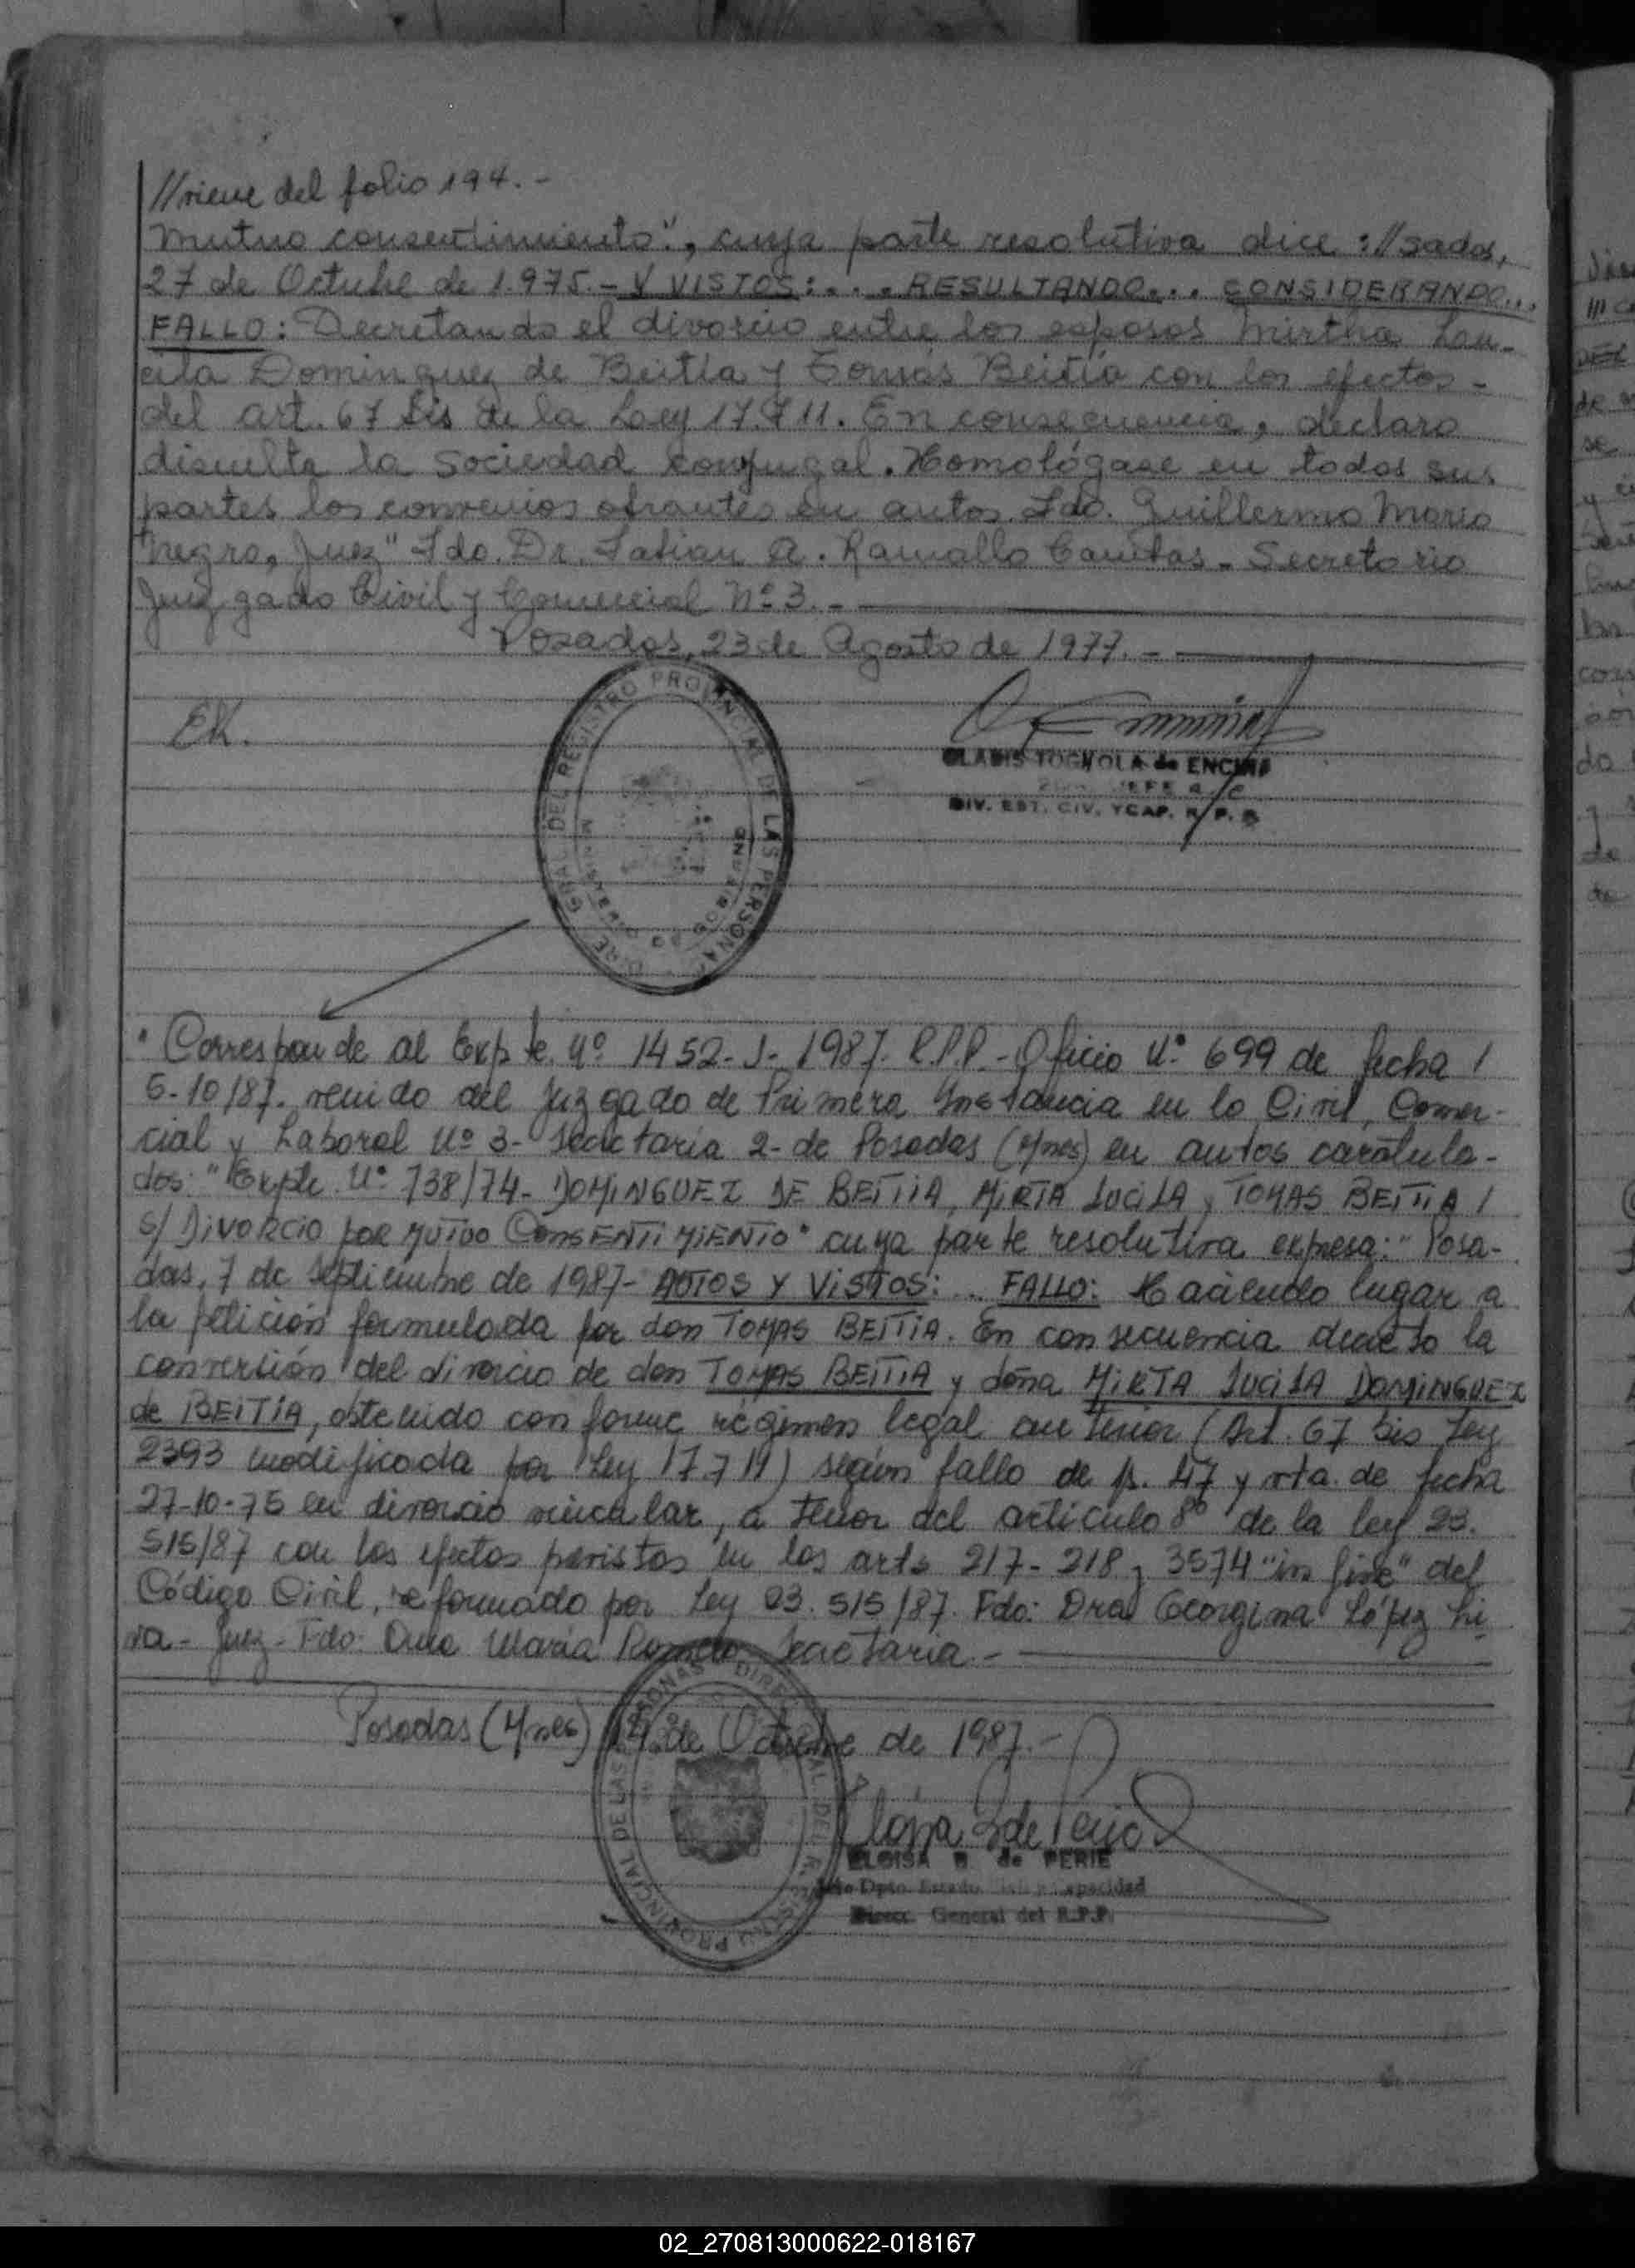 //viene del folio 194.-
mutuo consentimiento", cuya parte resolutiva dice://sadas,
27 de Octubre de 1.975.- Y VISTOS:... RESULTANDO... CONSIDERANDO...
FALLO: Decretando el divorcio entre los esposos Mirtha Lu-
cila Dominguez de Beitía y Tomás Beitía con los efectos-
del art. 67 bis de la Ley 17.711. En consecuencia, declaro
disuelta la sociedad conyugal. Homológase en todas sus
partes los convenios obrantes en autos. Fdo. Guillermo Mario
Negro, Juez" Fdo. Dr. A. Ramallo - Secretario
Juzgado Civil y Comercial Nº 3.-
Posadas, 23 de Agosto de 1977.-
EK.
DIRE. GRAL. DEL REGISTRO PROVINCIAL DE LAS PERSONAS
MINISTERIO DE GOBIERNO
GLADIS TOGNOLA de ENCINA
JEFE a/c
DIV. EST. CIV. Y CAP. R. P. P.
"Corresponde al Expte. Nº 1452-J-1987. R.P.P.- Oficio Nº 699 de fecha /
5-10/87. venido del Juzgado de Primera Instancia en lo Civil, Comer-
cial y Laboral Nº 3- Secretaría 2- de Posadas (Mnes) en autos caratula-
dos: "Expte. Nº 738/74- DOMINGUEZ DE BEITIA, MIRTA LUCILA y TOMAS BEITIA /
S/ DIVORCIO POR MUTUO CONSENTIMIENTO" cuya parte resolutiva expresa: "Posa-
das, 7 de septiembre de 1987- AUTOS Y VISTOS:... FALLO: Haciendo lugar a
la petición formulada por don TOMAS BEITIA. En consecuencia decreto la
conversión del divorcio de don TOMAS BEITIA y doña MIRTA LUCILA DOMINGUEZ
de BEITIA, obtenido conforme régimen legal anterior (Art. 67 bis Ley
2393 modificada por Ley 17.711) según fallo de fs. 47 y vta. de fecha
27-10-75 en divorcio vincular, a tenor del artículo 8º de la ley 23.
515/87 con los efectos previstos en los arts 217-218 y 3574 "in fine" del
Código Civil, reformado por Ley 23.515/87. Fdo: Dra Georgina López Li
va- Juez- Fdo: María Romero Secretaria.-
Posadas (Mnes) 14 de Octubre de 1987.-
DIRE GRAL DEL REGISTRO PROVINCIAL DE LAS PERSONAS
ELOISA B de PERIE
Dpto. Estado Civil y Capacidad
Direcc. General del R.P.P.
02_270813000622-018167